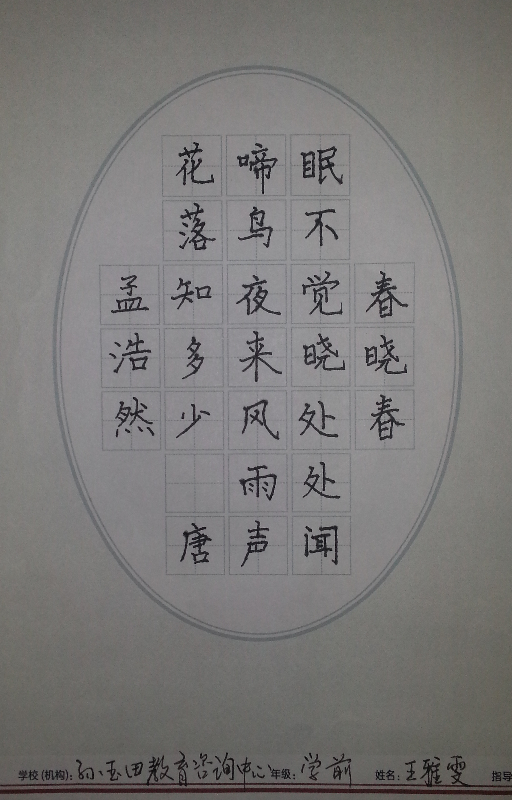 春晓春
眠不觉晓处处闻
啼鸟夜来风雨声
花落知多少 唐
孟浩然
学校(机构): 孙玉田教育咨询中心 年级: 学前 姓名: 王雅雯 指导